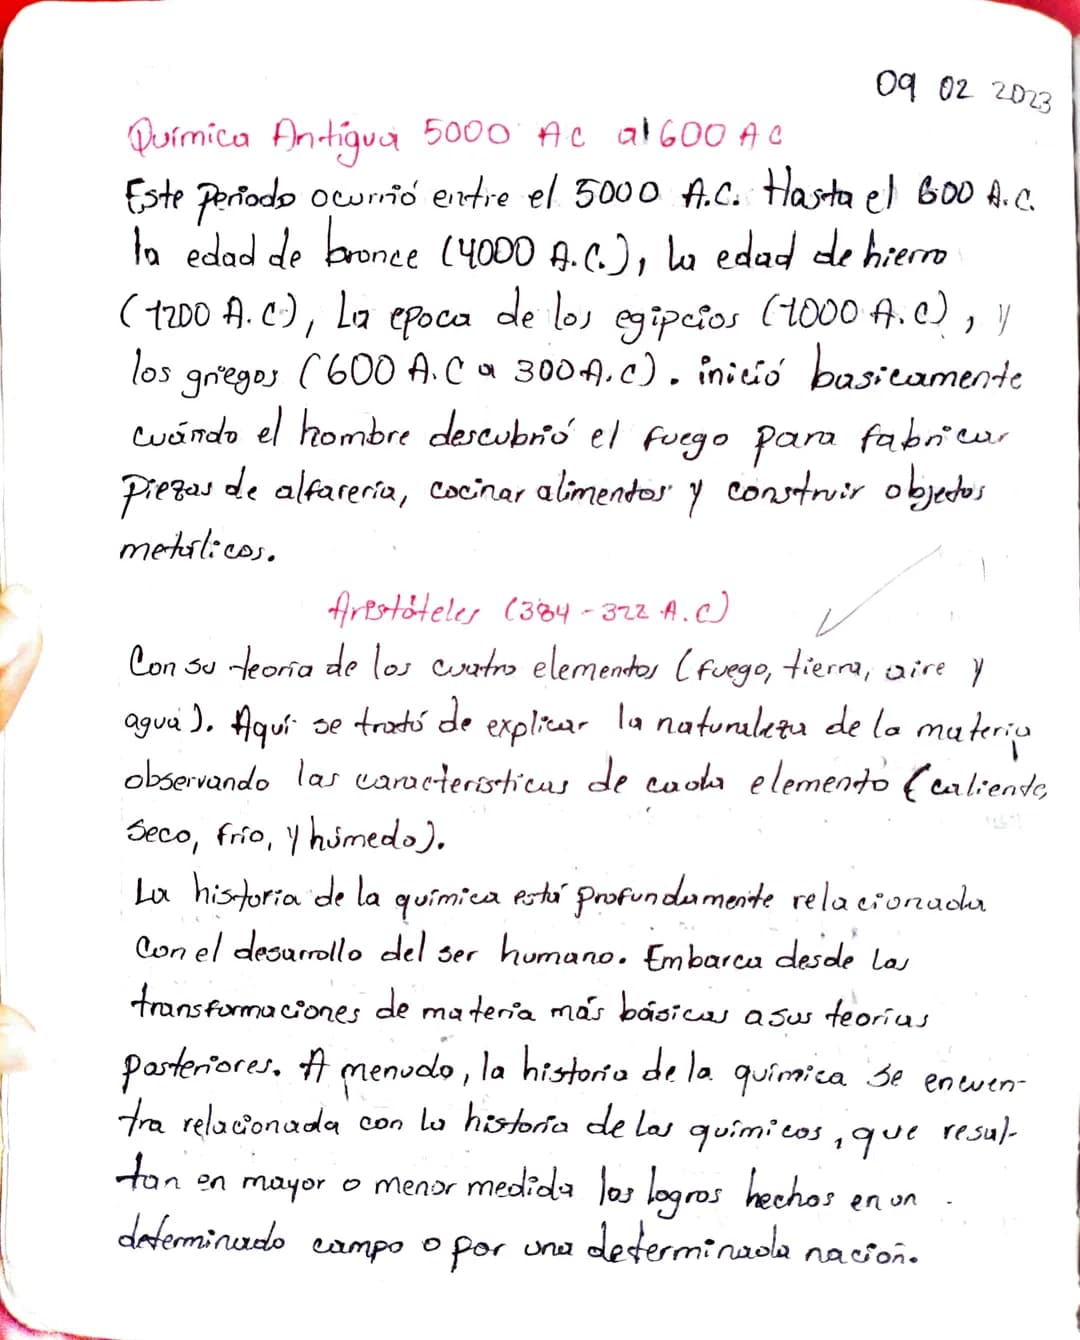 09 02 2023
Química Antigua 5000 AC al 600 AC
Este Periodo ocurrió entre el 5000 A.C. Hasta el 600 A.C.
la edad de bronce (4000 A.C.), la edad de hierro
(1200 A.C), La epoca de los egipcios (1000 A.C), y
los griegos (600 A.C a 300 A.C). inició basicamente
cuándo el hombre descubrió el fuego para fabricar
Piezas de alfarería, cocinar alimentos y construir objetos
metálicos.
Arestóteles (384-322 A.C)
Con su teoría de los cuatro elementos (fuego, tierra, aire y
agua). Aquí se trató de explicar la naturaleza de la materia
observando las características de cada elemento (caliente,
Seco, frío, y húmedo).
La historia de la química está profundamente relacionada
Con el desarrollo del ser humano. Embarca desde las
transformaciones de materia más básicas a sus teorías
posteriores. A menudo, la historia de la química se encuen-
tra relacionada con la historia de los químicos, que resul-
tan en mayor o menor medida los logros hechos en un
determinado campo o por una determinada nación.